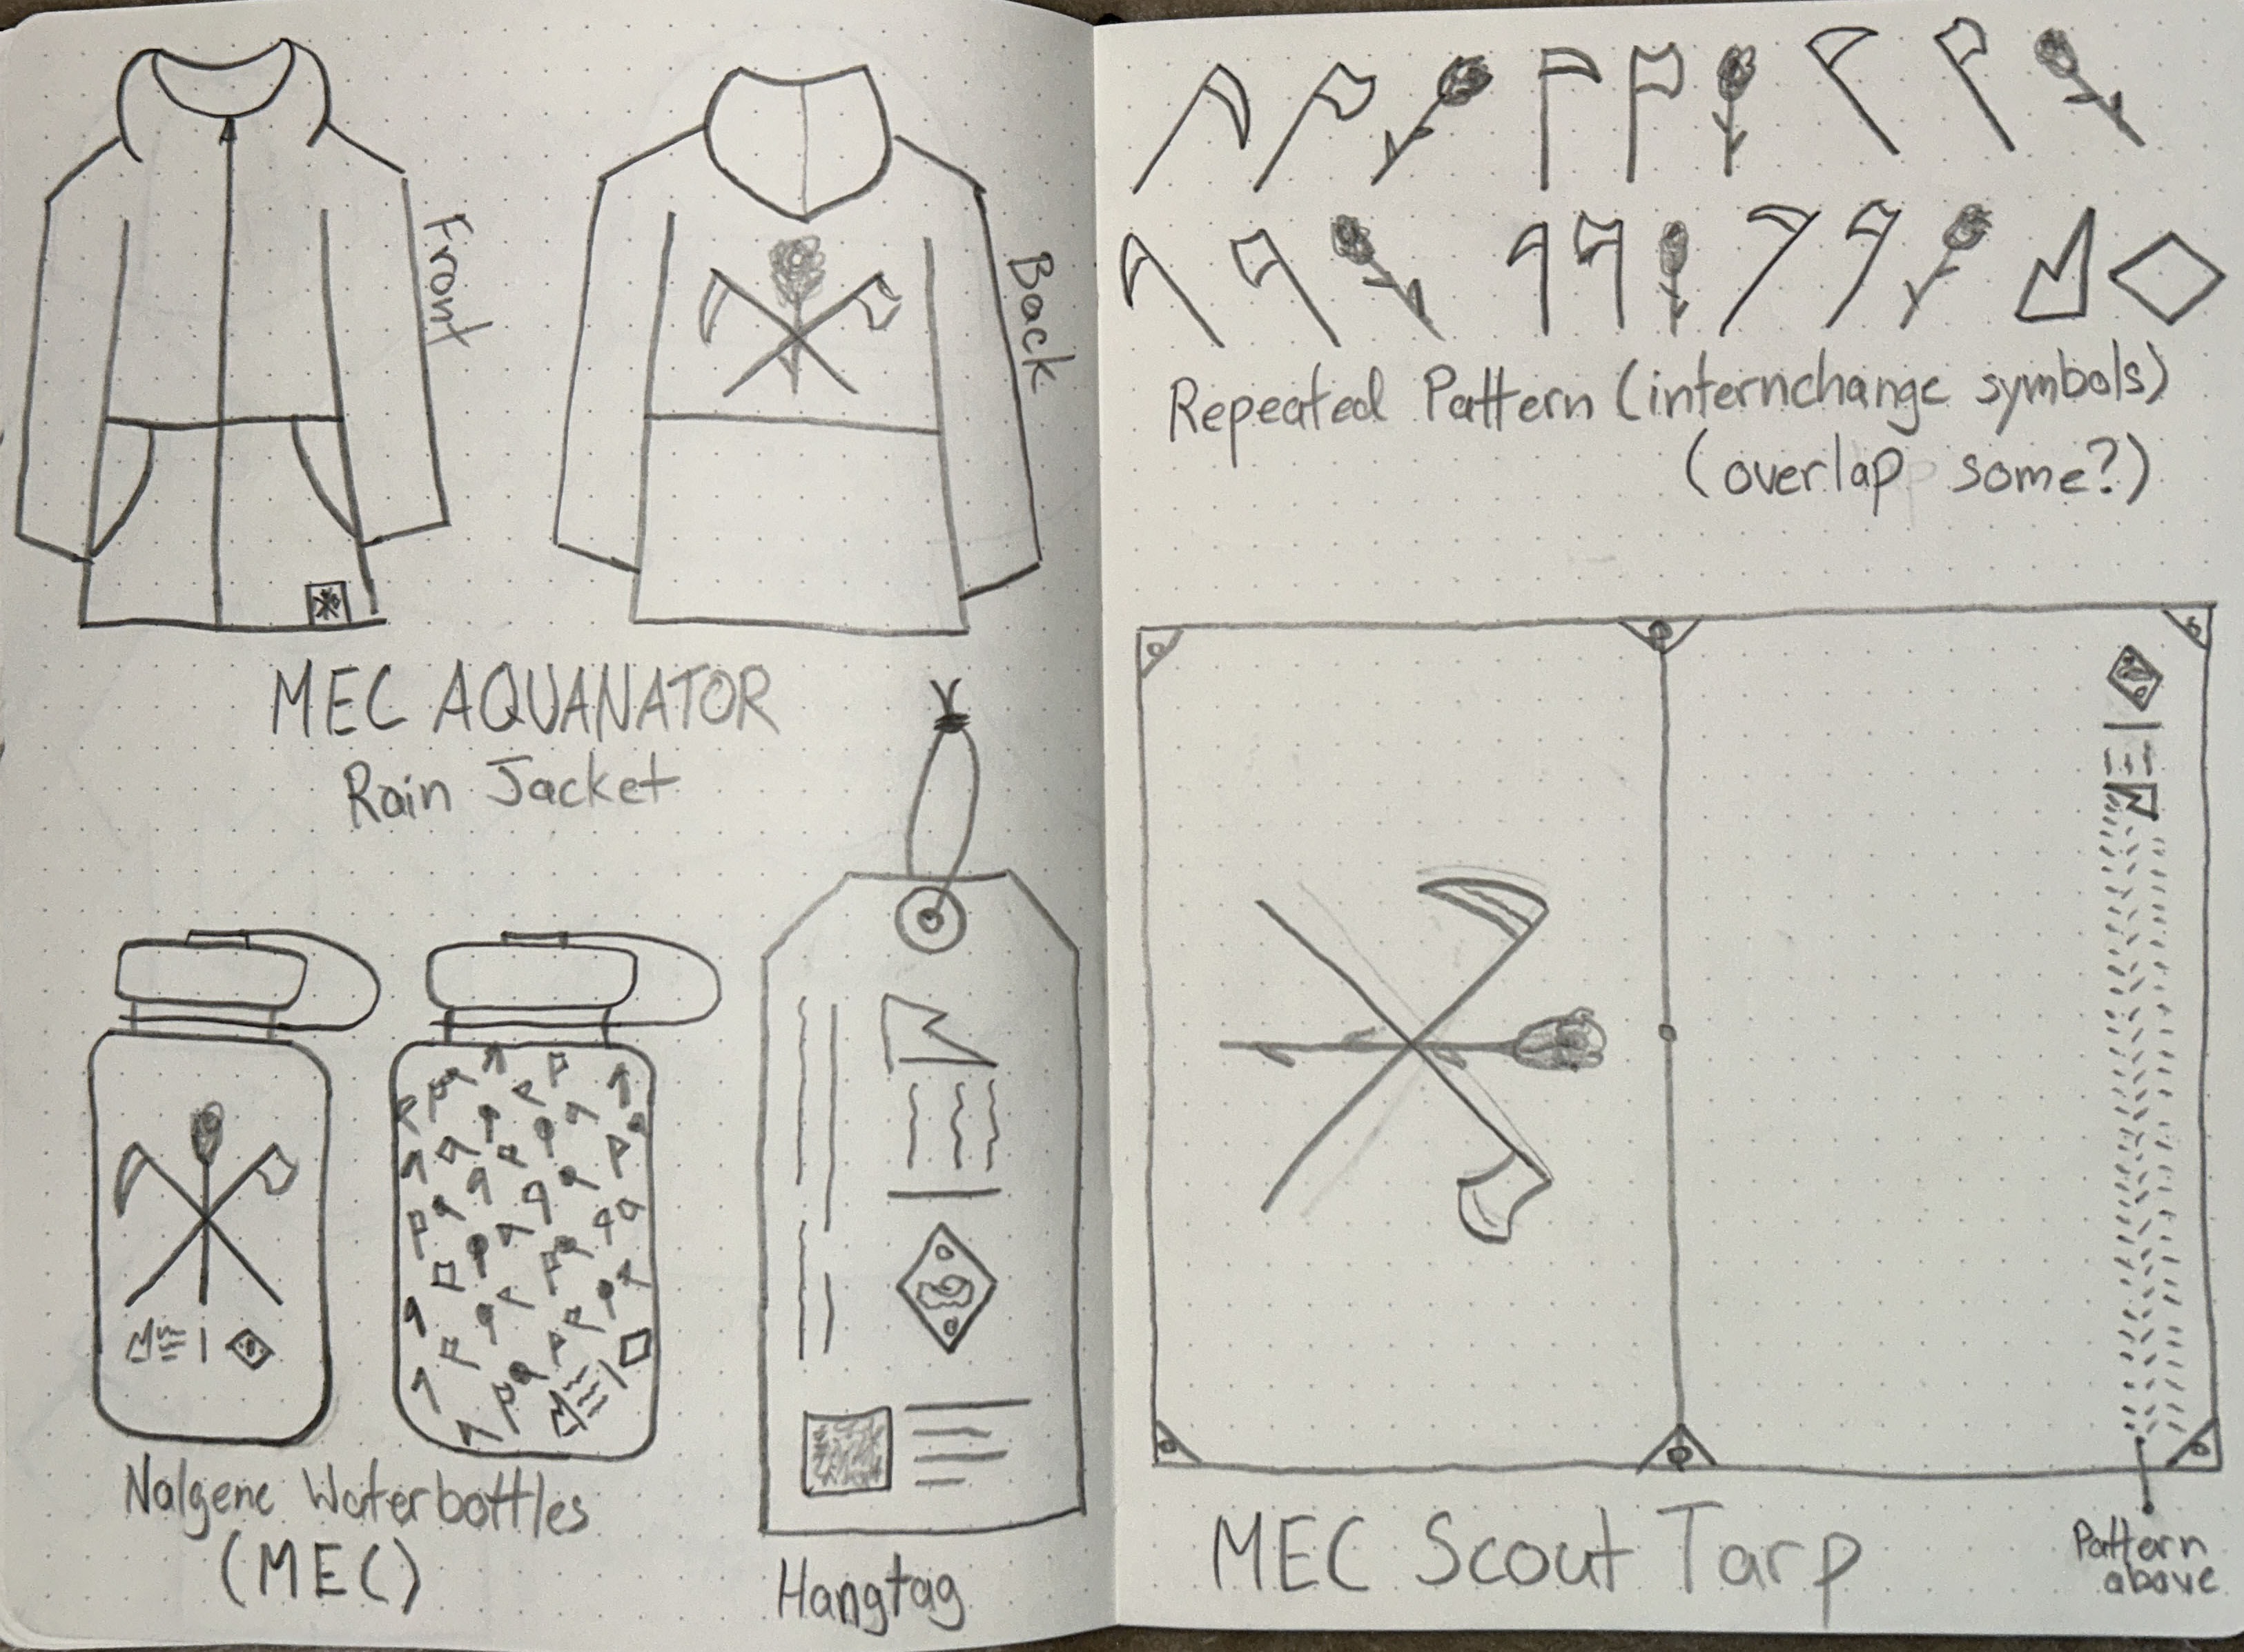 Front
Back
MEC AQUANATOR
Rain Jacket
Nalgene Waterbottles
(MEC)
Hangtag
Repeated Pattern (internchange symbols)
(overlap some?)
MEC Scout Tarp
Pattern
above